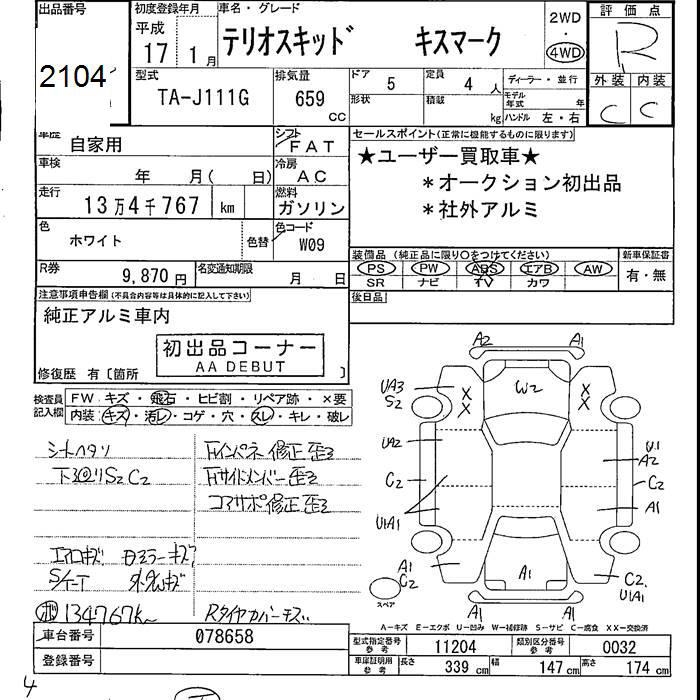 出品番号 初度登録年月 車名・グレード 2WD 評価点
平成 テリオスキッド キスマーク ・
17 1月 4WD R
2104 型式 排気量 ドア 5 定員 4人 ディーラー・並行 外装 内装
TA-J111G 659 cc 形状 積載 kg モデル年式 年 C C
ハンドル 左・右
車歴 自家用 シフト FAT セールスポイント(正常に機能するものに限ります)
車検 年 月( 日) 冷房 AC ★ユーザー買取車★
走行 13万4千767 km 燃料 ガソリン *オークション初出品
色 ホワイト 色替 色コード W09 *社外アルミ
R券 9,870円 名変通知期限 月 日 装備品(純正品に限り○をつけてください) 新車保証書
PS PW ABS エアB AW 有・無
SR ナビ TV カワ
注意事項申告欄(不具合内容等は具体的に記入して下さい) 後日品
純正アルミ車内
初出品コーナー
AA DEBUT
修復歴 有〔箇所 〕
検査員記入欄 FW キズ・飛石・ヒビ割・リペア跡・×要
内装・キズ・汚レ・コゲ・穴・スレ・キレ・破レ
シートヘタリ Fインパネ修正歪ミ
下回りS2C2 Fサイドメンバー歪ミ
コアサポ修正歪ミ
エアロキズ
134767k Rタイヤカバーキズ
A2 A1
UA3 S2 X X W2 X X
UA2 U1 A2
C2 C2
U1A1 A1
A1 C2 A1 C2 U1A1
スペア A1 A1
A-キズ E-エクボ U-凹み W-補修跡 S-サビ C-腐食 XX-交換済
車台番号 078658 型式指定番号 参考 11204 類別区分番号 参考 0032
登録番号 車庫証明用 参考 長さ 339cm 幅 147cm 高さ 174cm
4